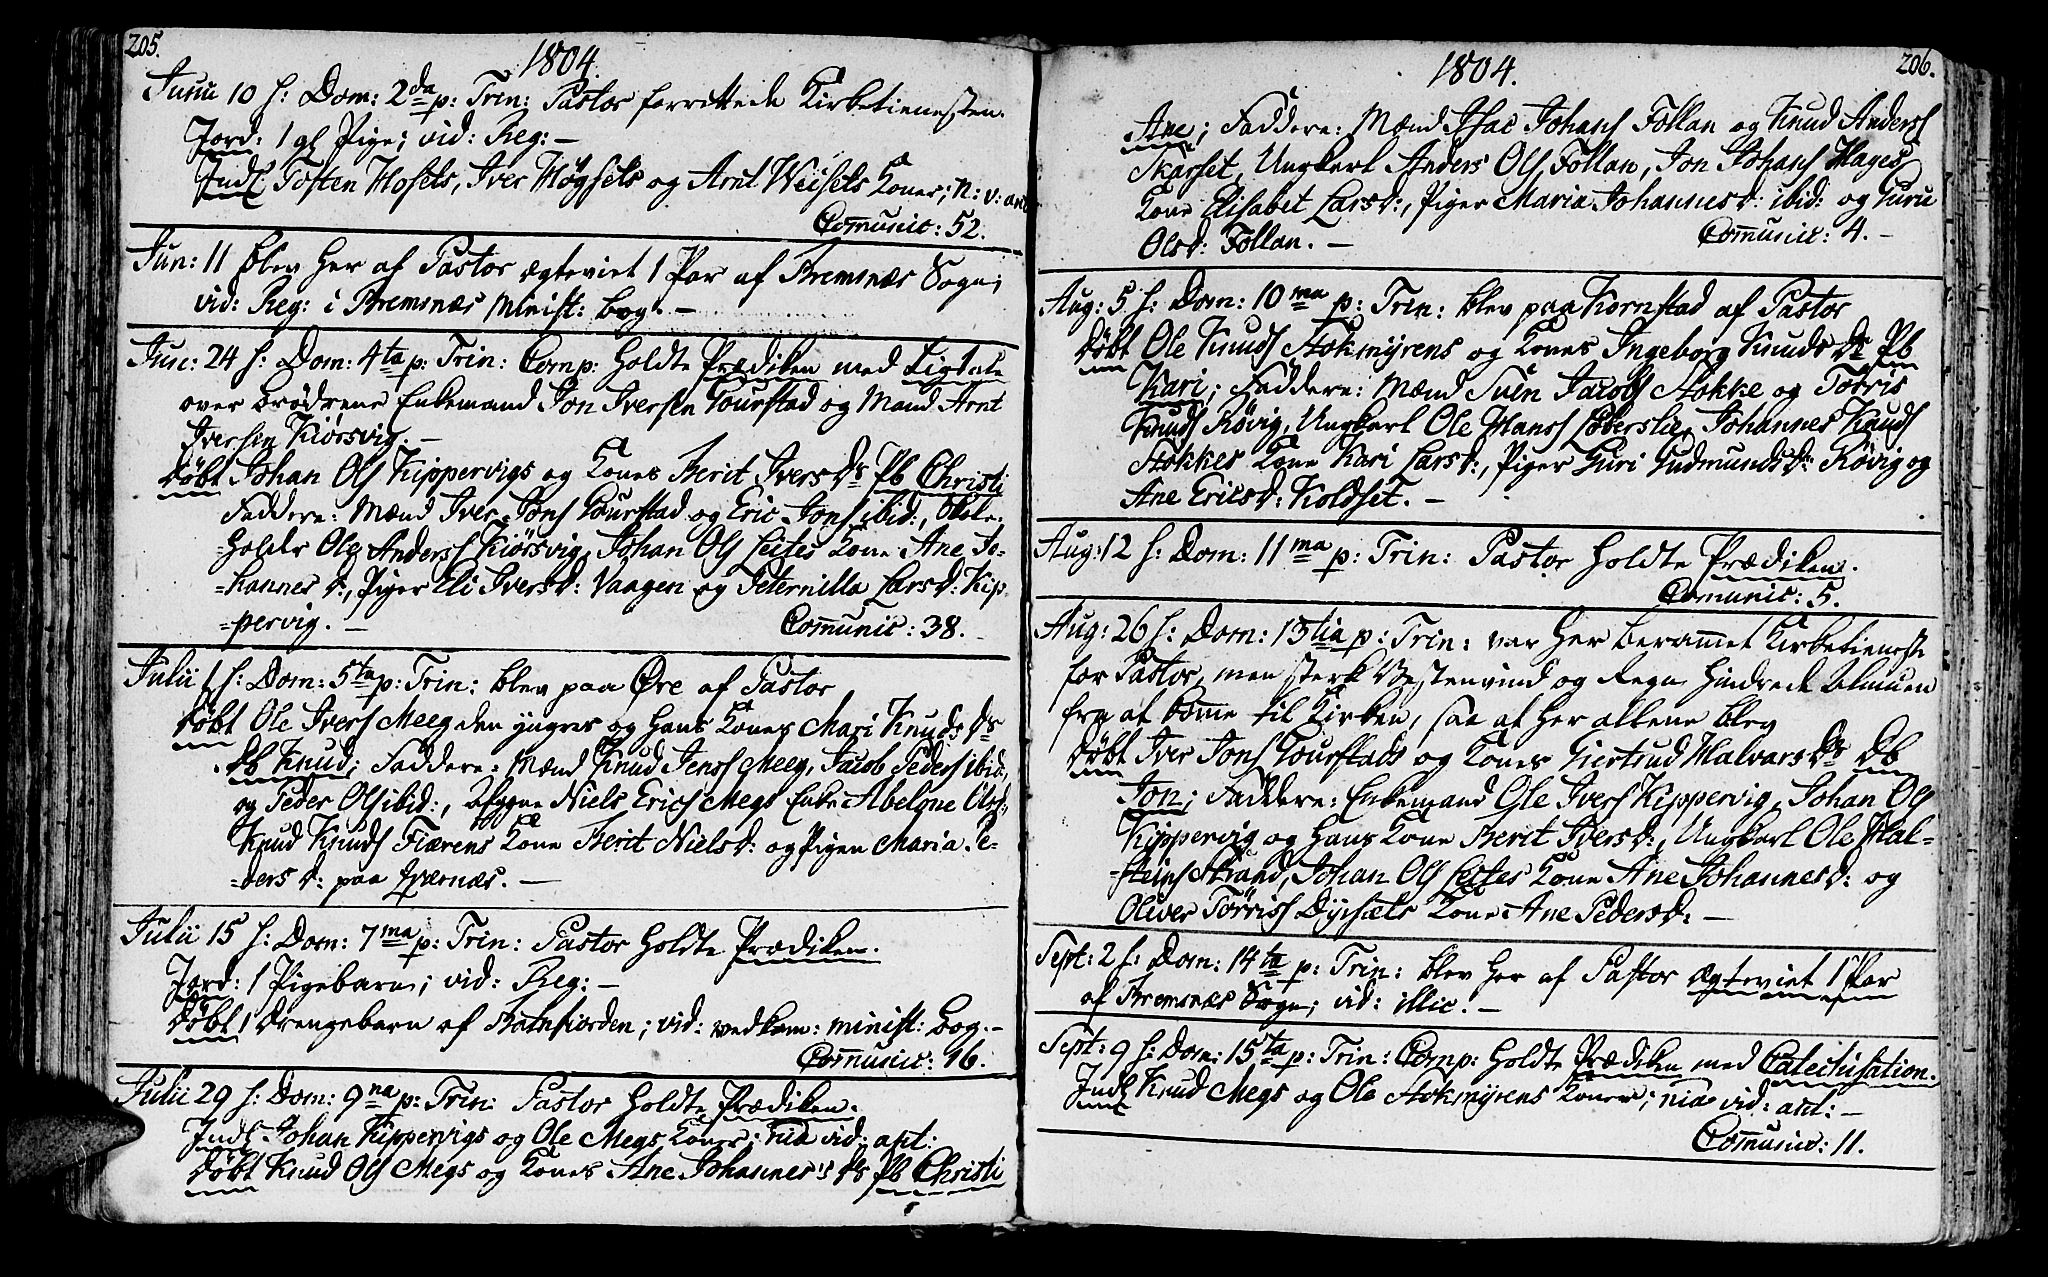 205.
1804.
Junii 10 h: Dom: 2da p: Trin: Pastor forrettede Kirketienesten.
Jord: 1 gl Pige; vid: Reg: —
Indl Tosten Hosets, Iver Høgsets og Arnt Weisets Koner; N: v: ant
Com̄unic: 52.
Jun: 11 blev her af Pastor ægteviet 1 Par af Bremsnæs Sogn;
vid: Reg: i Bremsnæs Minist: bog. —
Jun: 24 h: Dom: 4ta p: Trin: Comp: holdte Prædiken med Ligtale
over brødrene Enkemand Jon Iversen Tourstad og Mand Arnt
Iversen Kiørsvig. —
Døbt Johan Ols Kippervigs og Kones Berit Ivers Dr Pb Christi
Faddere: Mænd Iver Jons Tourstad og Eric Jons ibid:, Skole-
=holder Ole Anders Kiørsvig, Johan Ols Leites Kone Ane Jo-
=hannes D:, Piger Eli Ivers d: Vaagen og Peternilla Lars d: Kip-
=pervig. —
Com̄unic: 38. —
Julii 1 h: Dom: 5ta p: Trin: blev paa Øre af Pastor
Døbt Ole Ivers Meeg den yngres og hans Kones Mari Knuds Dr
Db Knud; Faddere: Mænd Knud Jens Meeg, Jacob Peders ibid:,
og Peder Ols ibid:, Afggne Niels Erics Megs Enke Abelone Olsd:,
Knud Knuds Fiærens Kone Berit Niels d: og Pigen Maria Pe-
=ders d: paa Qværnæs. —
Julii 15 h: Dom: 7ma p: Trin: Pastor holdte Prædiken.
Jord: 1 Pigebarn; vid: Reg: —
Døbt 1 Drengebarn af Batnfiorden; vid: vedkom: minist: Bog. —
Com̄unic: 16.
Julii 29 h: Dom: 9na p: Trin: Pastor holdte Prædiken.
Indl Johan Kippervigs og Ole Megs Koner; nia vid: ant:
Døbt Knud Ols Megs og Kones Ane Johannes's Dr Pb Christi
206.
1804.
Ane; Faddere: Mænd Isac Johans Follan og Knud Anders
Skarset, Ungkarl Anders Ols Follan, Jon Johans Hages
Kone Elisabet Lars d:, Piger Maria Johannes d: ibid: og Guru
Ols d: Follan. —
Com̄unic: 4. —
Aug: 5 h: Dom: 10ma p: Trin: blev paa Kornstad af Pastor
Døbt Ole Knuds Stokmyrens og Kones Ingeborg Knuds Dr Pb
Kari; Faddere: Mænd Suen Jacobs Stokke og Tørris
Knuds Røvig, Ungkarl Ole Hans Løberslie, Johannes Knuds
Stokkes Kone Kari Lars d:, Piger Guri Gudmunds Dr Røvig og
Ane Erics d: Koldset. —
Aug: 12 h: Dom: 11ma p: Trin: Pastor holdte Prædiken.
Com̄unic: 5.
Aug: 26 h: Dom: 13tia p: Trin: var her beram̄et Kirketieneste
for Pastor, men sterk Vestenvind og Regn hindrede Almuen
fra at kom̄e til Kirken, saa at her allene blev
Døbt Iver Jons Tourstads og Kones Giertrud Halvars Dr Db
Jon; Faddere: Enkemand Ole Ivers Kippervig, Johan Ols
Kippervig og hans Kone Berit Ivers d:, Ungkarl Ole Hal-
=steins Strand, Johan Ols Leites Kone Ane Johannes d: og
Oliver Tørris Dyrsæts Kone Ane Peders d: —
Sept: 2 h: Dom: 14ta p: Trin: blev her af Pastor ægteviet 1 Par
af Bremsnæs Sogn; vid: illic. —
Sept: 9 h: Dom: 15ta p: Trin: Comp: holdte Prædiken med Catechisation.
Indl Knud Megs og Ole Stokmyrens Koner; nia vid: ant: —
Com̄unic: 11.